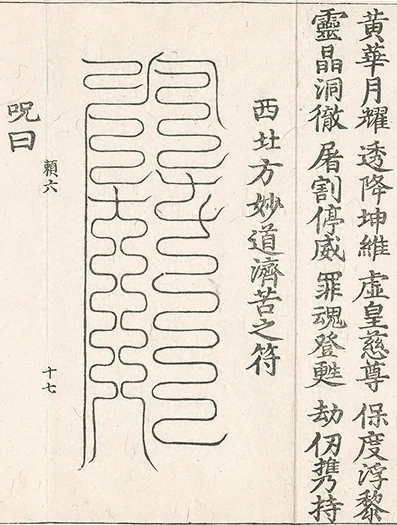 黃華月耀 透降坤維 虛皇慈尊 保度浮黎
靈晶洞徹 屠割停威 罪魂登甦 劫仞携持
西北方妙道濟苦之符
頼六 十七
呪曰